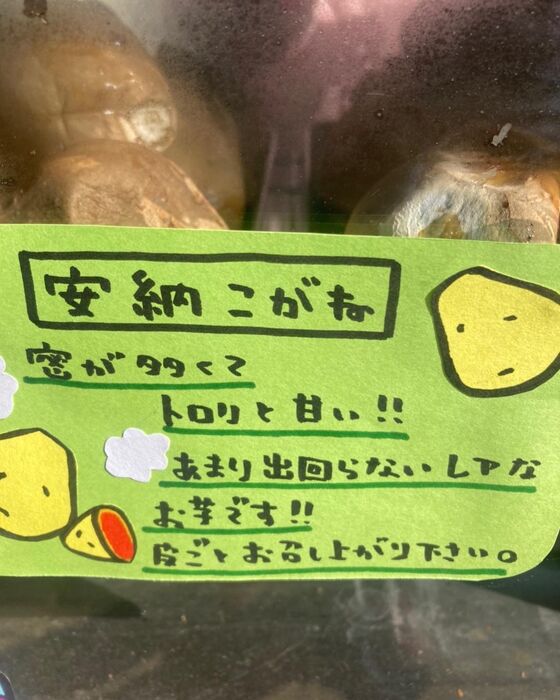 安納こがね
蜜が多くて
トロリと甘い!!
あまり出回らないレアな
お芋です!!
皮ごとお召し上がり下さい。